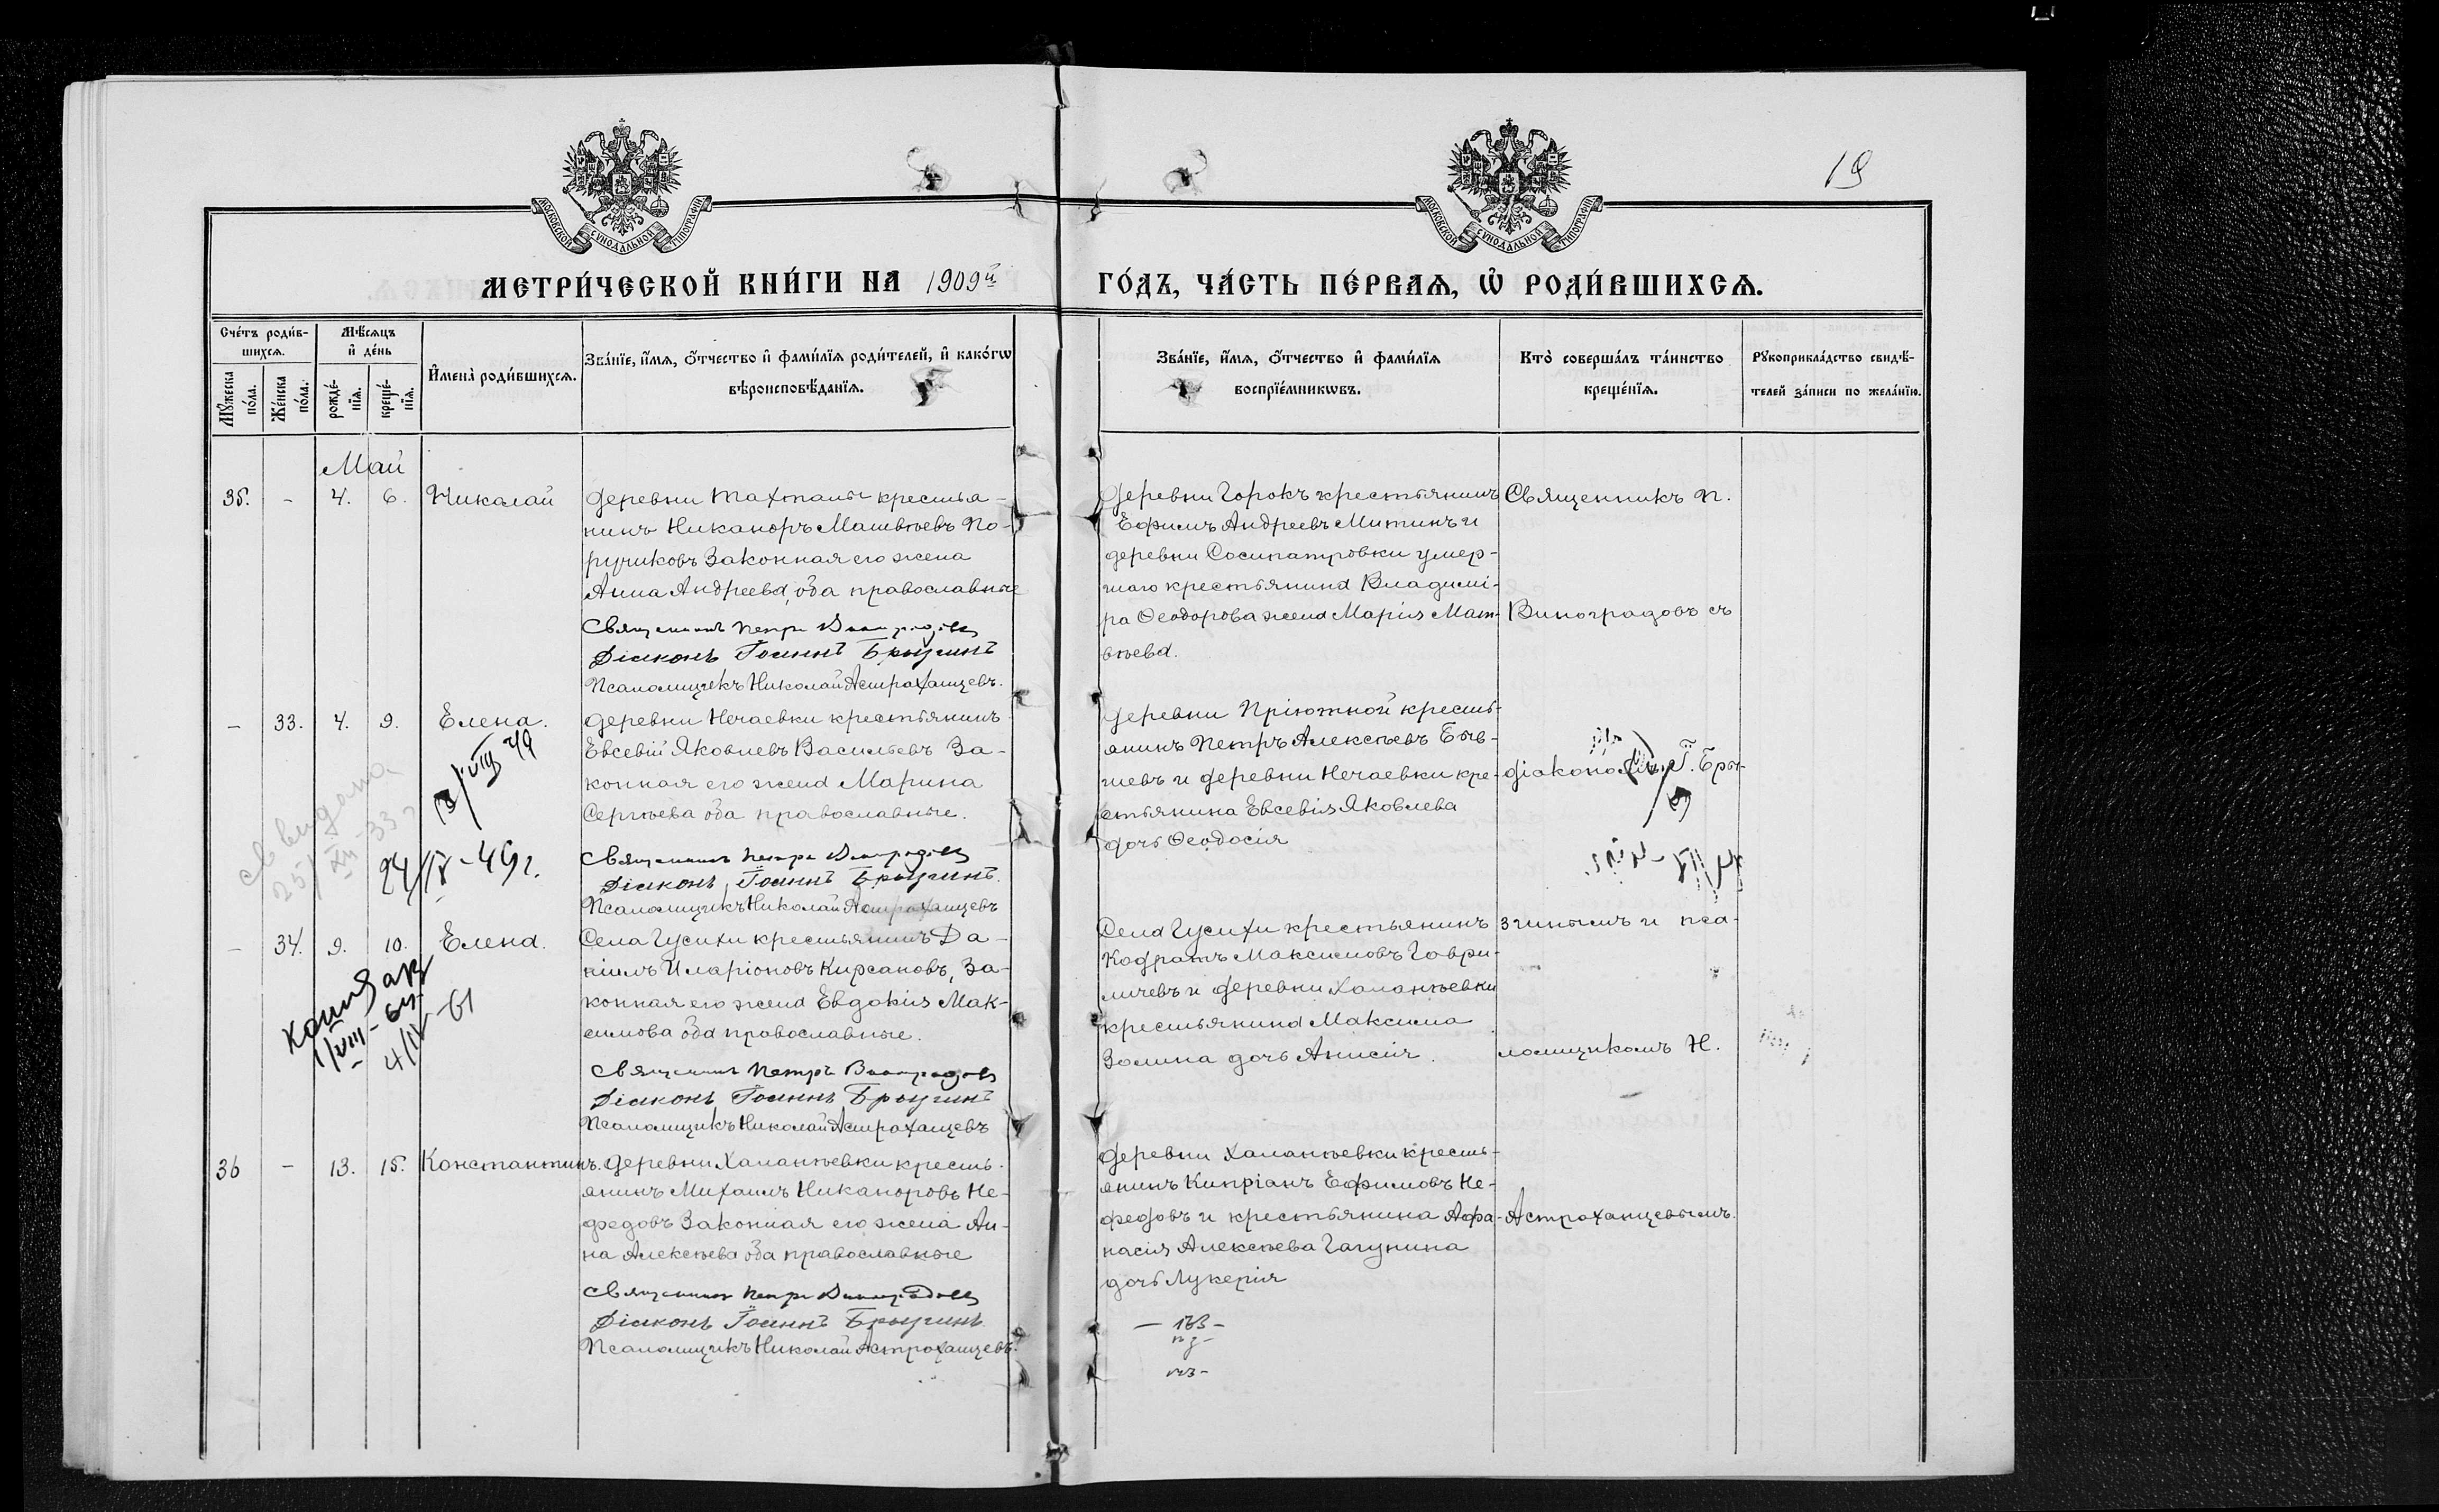 19
МОСКОВСКОЙ СѴНОДАЛЬНОЙ ТИПОГРАФІИ
МОСКОВСКОЙ СѴНОДАЛЬНОЙ ТИПОГРАФІИ
МЕТРИ́ЧЕСКОЙ КНИ́ГИ НА 1909й ГО́ДЪ, ЧА́СТЬ ПЕ́РВАѦ, Ѡ РОДИ́ВШИХСѦ.
Сче́тъ роди́в-
шихсѧ.
Мꙋ́жеска по́ла.
Же́нска по́ла.
Мѣ́сѧцъ
и҆ де́нь
рожде́-
нїѧ.
креще́-
нїѧ.
И҆мена̀ роди́вшихсѧ.
Зва́нїе, и҆́мѧ, ѻ҆́тчество и҆ фами́лїѧ роди́телей, и҆ како́гѡ
вѣроисповѣ́данїѧ.
Зва́нїе, и҆́мѧ, ѻ҆́тчество и҆ фами́лїѧ
воспрїе́мникѡвъ.
Кто̀ соверша́лъ та́инство
креще́нїѧ.
Рꙋкоприкла́дство свидѣ́-
телей за́писи по жела́нїю.
Май
35. - 4. 6. Николай
деревни Тахталы крестья-
нинъ Никаноръ Матвѣевъ По-
ручиковъ Законная его жена
Анна Андреева, оба православные
Священникъ Петръ Виноградовъ
Діаконъ Іоаннъ Брызгинъ
Псаломщикъ Николай Астраханцевъ.
деревни Горокъ крестьянинъ
Ефимъ Андреевъ Митинъ и
деревни Сосипатровки умер-
шаго крестьянина Владимі-
ра Ѳеодорова жена Марія Мат-
вѣева.
Священникъ П.
Виноградовъ съ
- 33. 4. 9. Елена.
деревни Нечаевки крестьянинъ
Евсевій Яковлевъ Васильевъ За-
конная его жена Марина
Сергѣева оба православные.
Священникъ Петръ Виноградовъ
Діаконъ Іоаннъ Брызгинъ.
Псаломщикъ Николай Астраханцевъ
24/IV-49г.
деревни Пріютной кресть-
янинъ Петръ Алексѣевъ Быв-
шевъ и деревни Нечаевки кре-
стьянина Евсевія Яковлева
дочь Ѳеодосія
діакономъ І. Брыз-
- 34. 9. 10. Елена.
Села Гусихи крестьянинъ Да-
ніилъ Иларіоновъ Кирсановъ, За-
конная его жена Евдокія Мак-
симова оба православные.
Священникъ Петръ Виноградовъ
Діаконъ Іоаннъ Брызгинъ
Псаломщикъ Николай Астраханцевъ
4/IV-61
Села Гусихи крестьянинъ
Кодратъ Максимовъ Гаври-
личевъ и деревни Халанѣевки
крестьянина Максима
Золина дочь Анисія.
згинымъ и пса-
ломщикомъ Н.
36 - 13. 15. Константинъ.
деревни Халанѣевки кресть-
янинъ Михаилъ Никаноровъ Не-
федовъ Законная его жена Ан-
на Алексѣева оба православные
Священникъ Петръ Виноградовъ
Діаконъ Іоаннъ Брызгинъ
Псаломщикъ Николай Астраханцевъ.
деревни Халанѣевки кресть-
янинъ Кипріанъ Ефимовъ Не-
федовъ и крестьянина Афа-
насія Алексѣева Чагунина
дочь Лукерія
Астраханцевымъ.